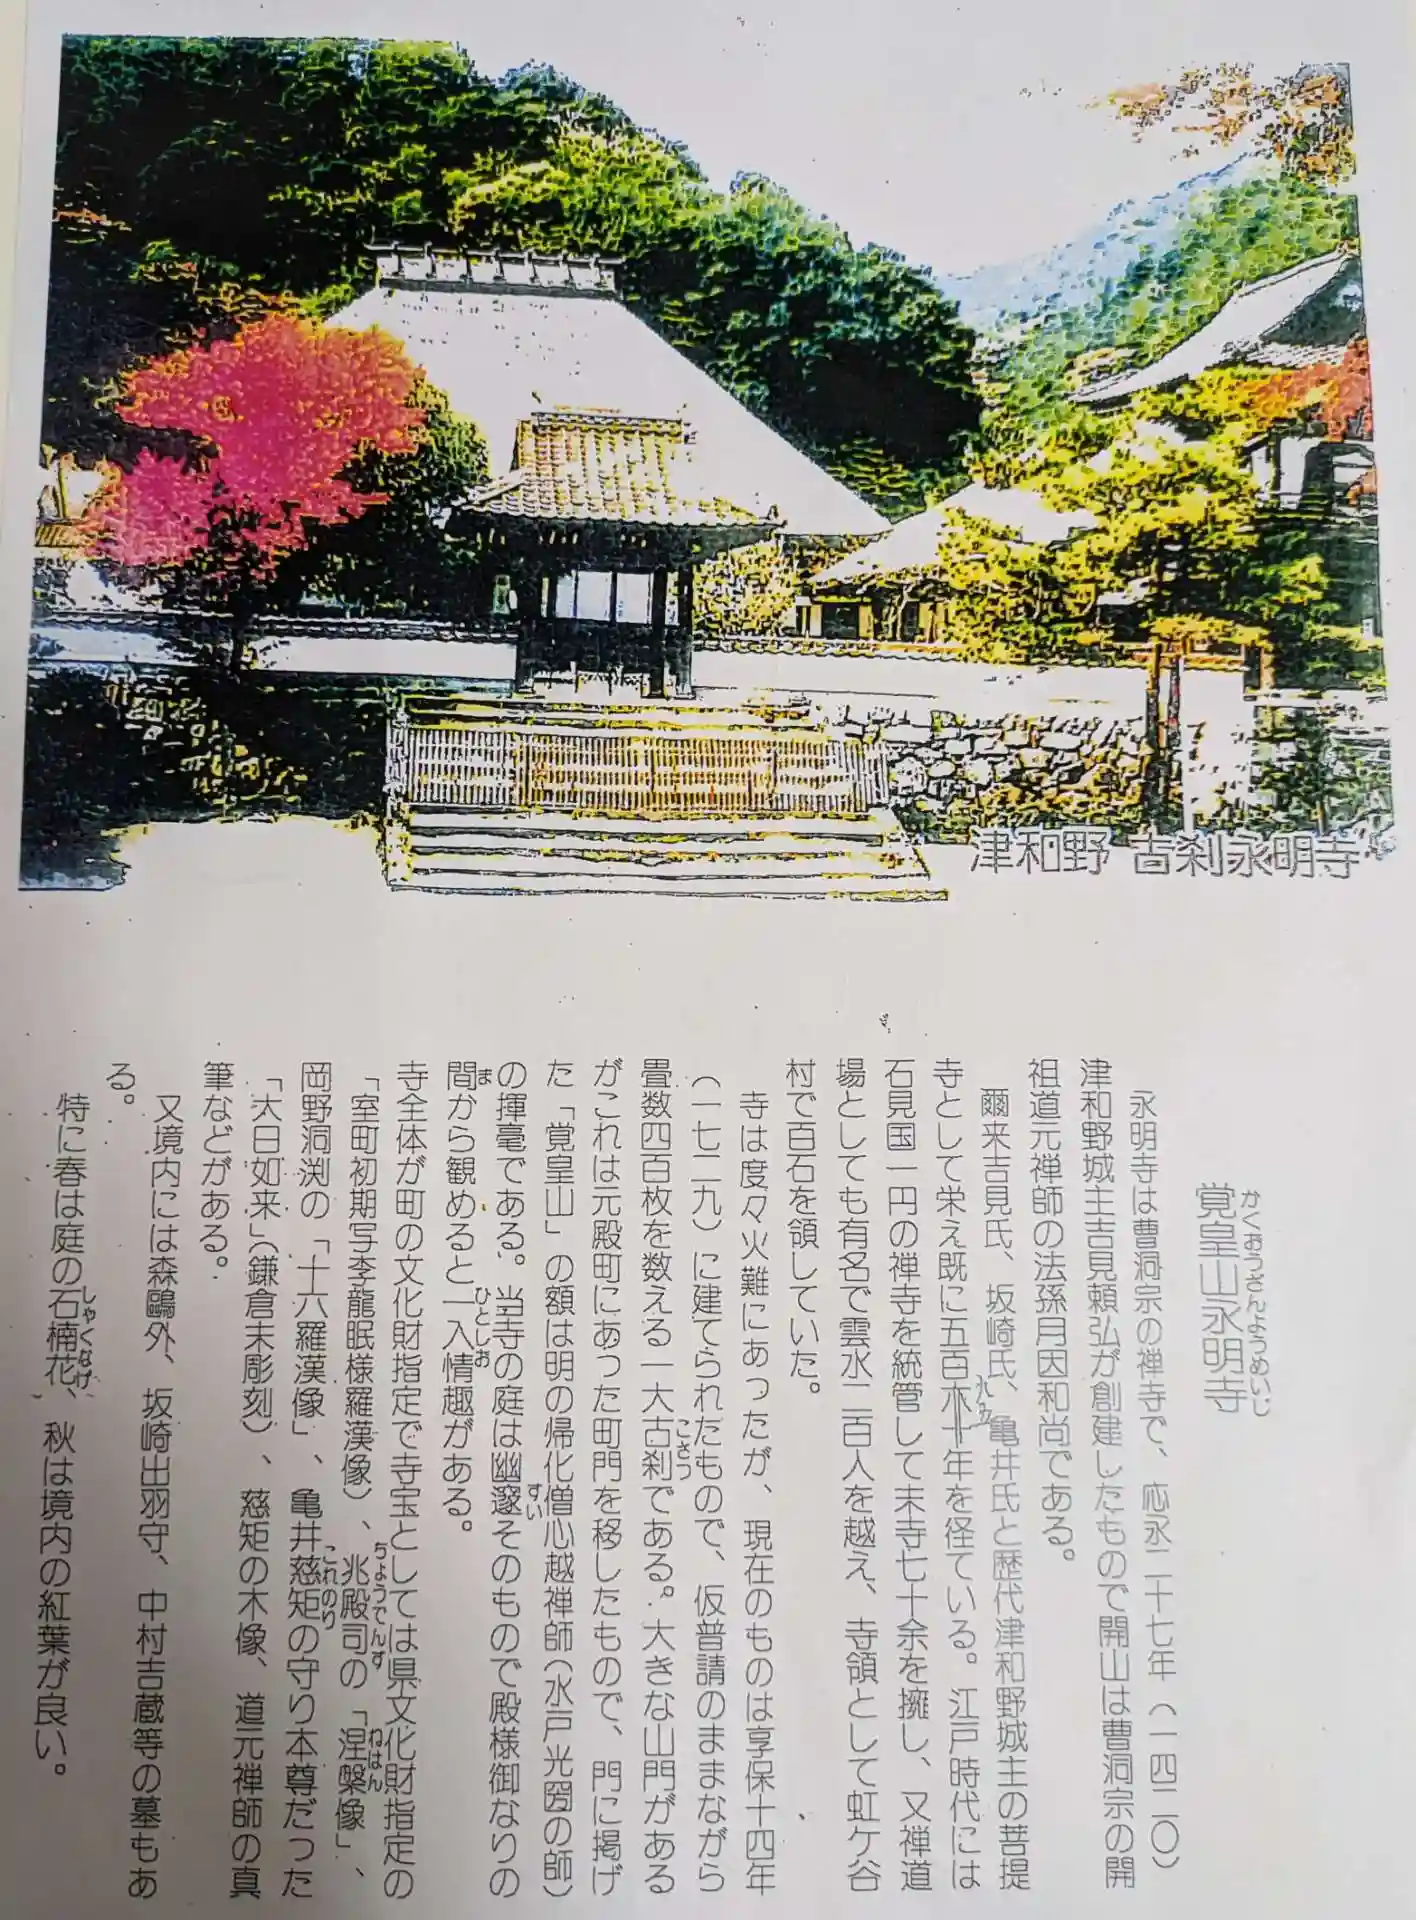 津和野 古刹永明寺
かくおうざんようめいじ
覚皇山永明寺
永明寺は曹洞宗の禅寺で、応永二十七年(一四二〇)
津和野城主吉見頼弘が創建したもので開山は曹洞宗の開
祖道元禅師の法孫月因和尚である。
爾来吉見氏、坂崎氏、亀井氏と歴代津和野城主の菩提
寺として栄え既に五百六十年を径ている。江戸時代には
石見国一円の禅寺を統管して末寺七十余を擁し、又禅道
場としても有名で雲水二百人を越え、寺領として虹ケ谷
村で百石を領していた。
寺は度々火難にあったが、現在のものは享保十四年
(一七二九)に建てられたもので、仮普請のままながら
こさつ
畳数四百枚を数える一大古刹である。大きな山門がある
がこれは元殿町にあった町門を移したもので、門に掲げ
た「覚皇山」の額は明の帰化僧心越禅師(水戸光圀の師)
すい
の揮毫である。当寺の庭は幽邃そのもので殿様御なりの
ま ひとしお
間から観めると一入情趣がある。
寺全体が町の文化財指定で寺宝としては県文化財指定の
ちょうでんす ねはん
「室町初期写李龍眠様羅漢像)、兆殿司の「涅槃像」、
これのり
岡野洞渕の「十六羅漢像」、亀井慈矩の守り本尊だった
「大日如来」(鎌倉末彫刻)、慈矩の木像、道元禅師の真
筆などがある。
又境内には森鷗外、坂崎出羽守、中村吉蔵等の墓もあ
る。
しゃくなげ
特に春は庭の石楠花、秋は境内の紅葉が良い。